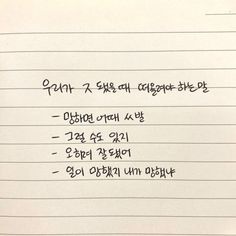 우리가 ㅈ됐을때 떠올려야 하는 말
- 망하면 어때 쓰발
- 그럴 수도 있지
- 오히려 잘됐어
- 일이 망했지 내가 망했냐